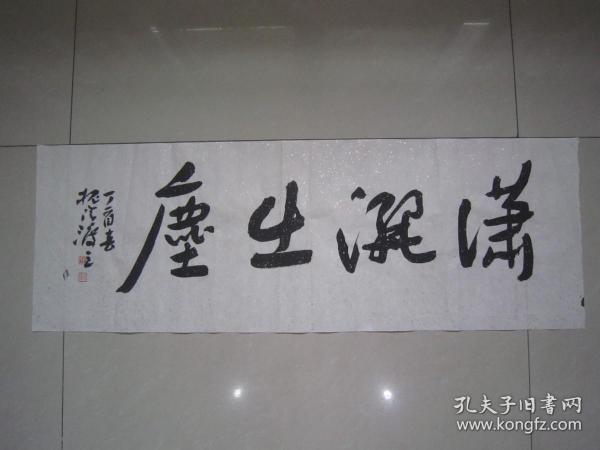 潇洒出塵
丁酉春
孔夫子旧書网
www.kongfz.com